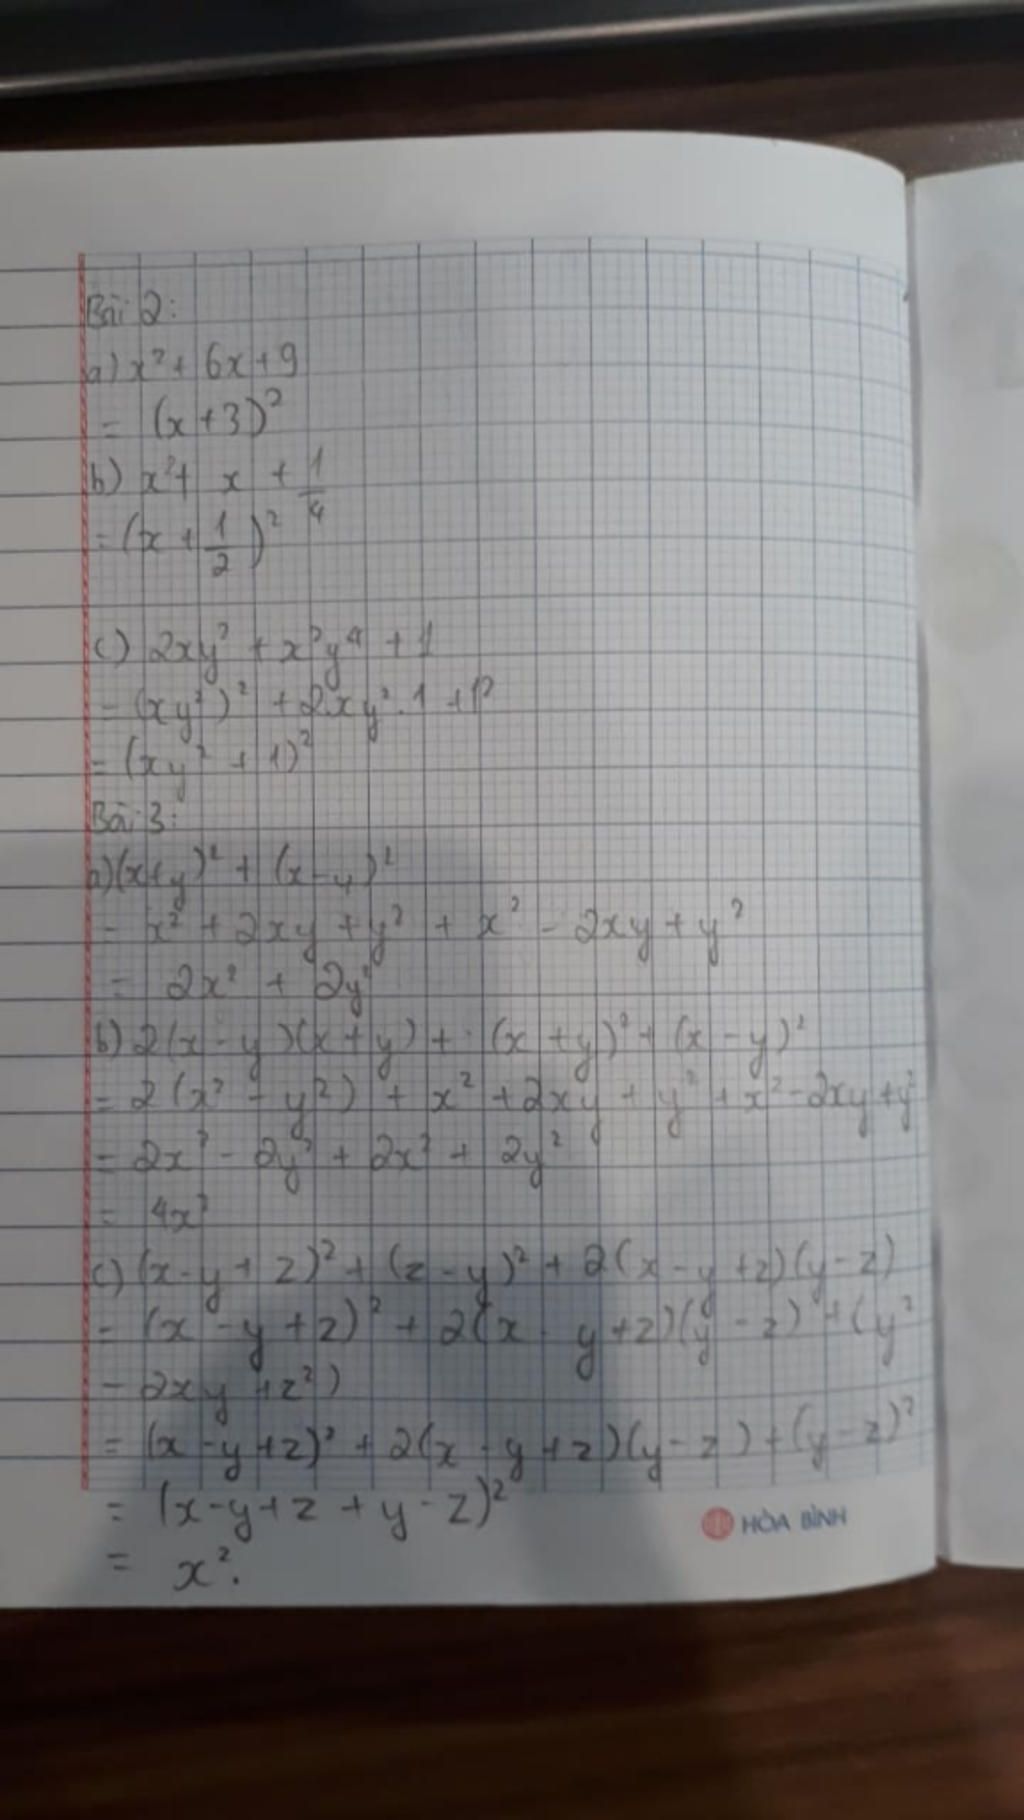 Bài 2:
a) x² + 6x + 9
= (x + 3)²
b) x² + x + 1/4
= (x + 1/2)²
c) 2xy² + x²y⁴ + 1
= (xy²)² + 2.xy².1 + 1²
= (xy² + 1)²
Bài 3:
a) (x+y)² + (x-y)²
= x² + 2xy + y² + x² - 2xy + y²
= 2x² + 2y²
b) 2(x - y)(x + y) + (x + y)² + (x - y)²
= 2(x² - y²) + x² + 2xy + y² + x² - 2xy + y²
= 2x² - 2y² + 2x² + 2y²
= 4x²
c) (x - y + z)² + (z - y)² + 2(x - y + z)(y - z)
= (x - y + z)² + 2(x - y + z)(y - z) + (y²
- 2xy + z²)
= (x - y + z)² + 2(x - y + z)(y - z) + (y - z)²
= (x - y + z + y - z)²
= x².
HÒA BÌNH